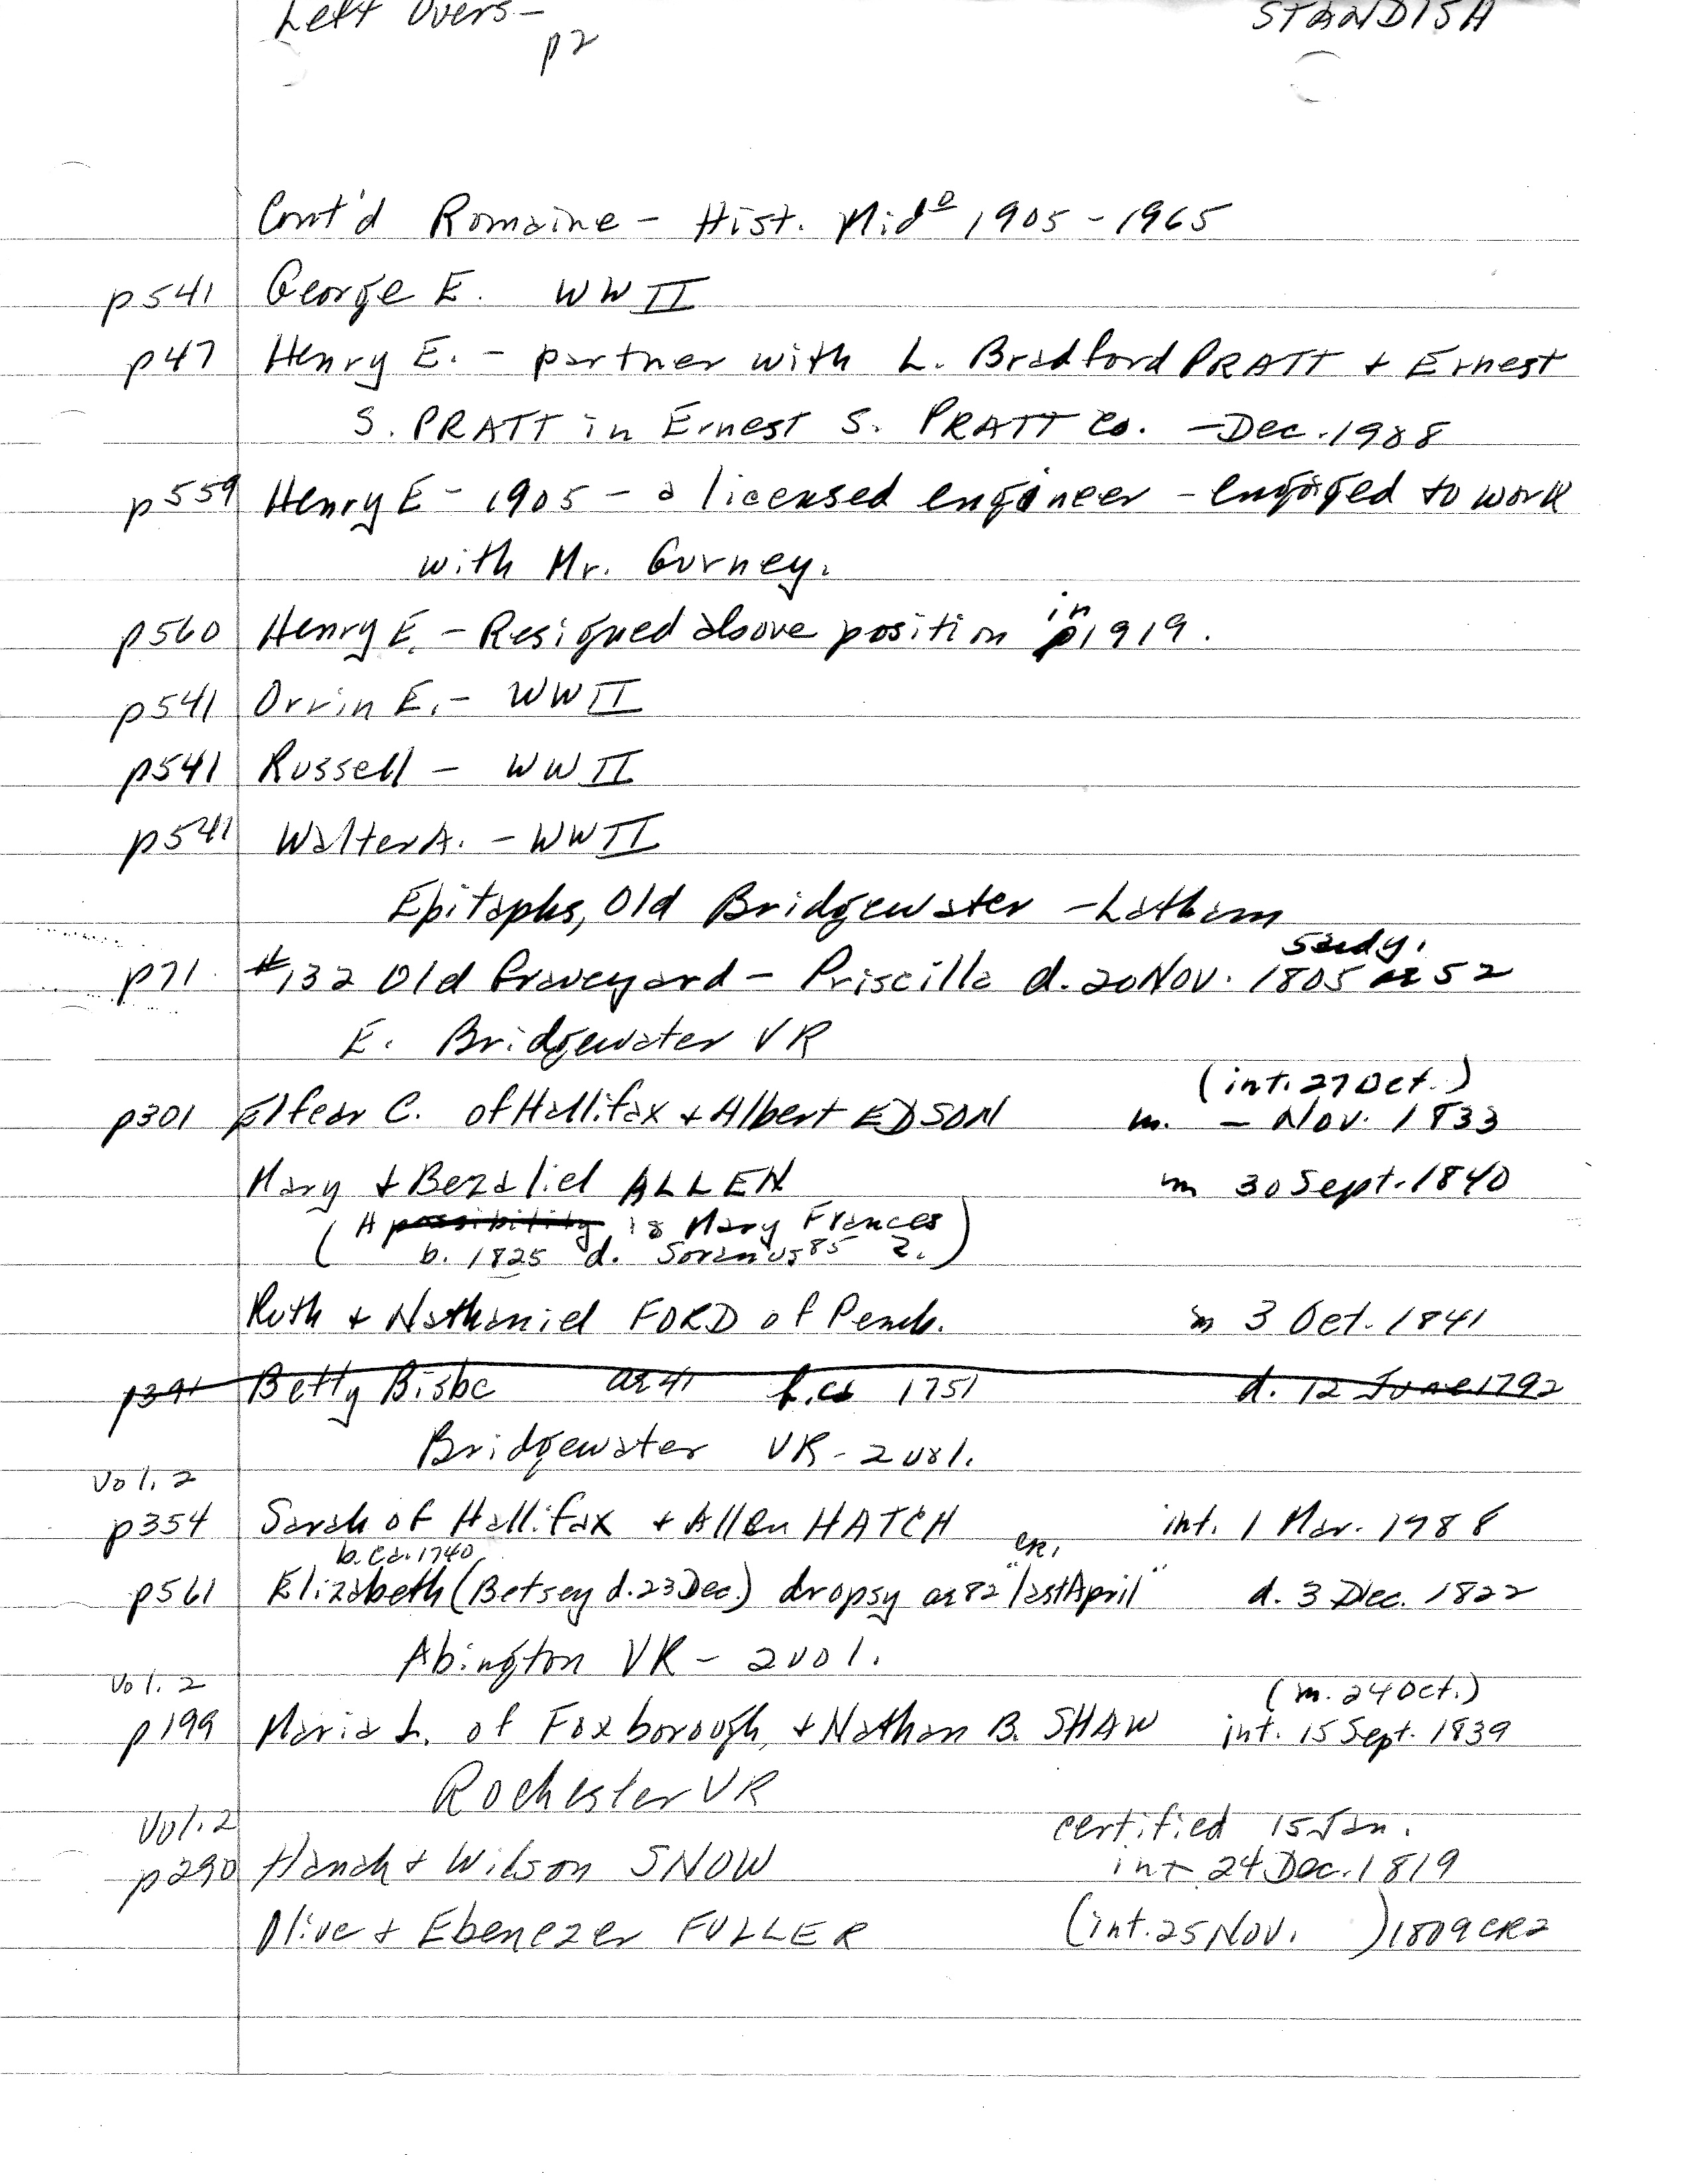 Left Overs-
p2
STANDISH
Cont'd Romaine - Hist. Mid⁰ 1905-1965
p541 George E. WW II
p47 Henry E. - partner with L. Bradford PRATT + Ernest
S. PRATT in Ernest S. PRATT Co. - Dec. 1988
p559 Henry E - 1905 - a licensed engineer - engaged to work
with Mr. Gurney.
p560 Henry E. - Resigned above position in 1919.
p541 Orrin E. - WW II
p541 Russell - WW II
p541 Walter A. - WW II
Epitaphs, Old Bridgewater - Latham
p71 #132 Old Graveyard - Priscilla d. 20 Nov. 1805 ae 52
E. Bridgewater VR
(int. 27 Oct.)
p301 Elfear C. of Hallifax + Albert EDSON m. - Nov. 1833
Mary + Bezaliel ALLEN m 30 Sept. 1840
(A possibility is Mary Frances
b. 1825 d. Soranus 85 ?.)
Ruth + Nathaniel FORD of Pemb. m 3 Oct. 1841
p391 Betty Bisbe ae 41 b. ca 1751 d. 12 June 1792
Bridgewater VR - 2 vol.
Vol. 2
p354 Sarah of Hallifax + Allen HATCH int. 1 Mar. 1788
b. ca. 1740 CR1
p561 Elizabeth (Betsey d. 23 Dec.) dropsy ae 82 "last April" d. 3 Dec. 1822
Abington VR - 2 vol.
Vol. 2 (m. 24 Oct.)
p199 Maria L. of Foxborough, + Nathan B. SHAW int. 15 Sept. 1839
Rochester VR
Vol. 2 certified 15 Jan.
p290 Hanah + Wilson SNOW int 24 Dec. 1819
Olive + Ebenezer FULLER (int. 25 Nov. ) 1809 CR2